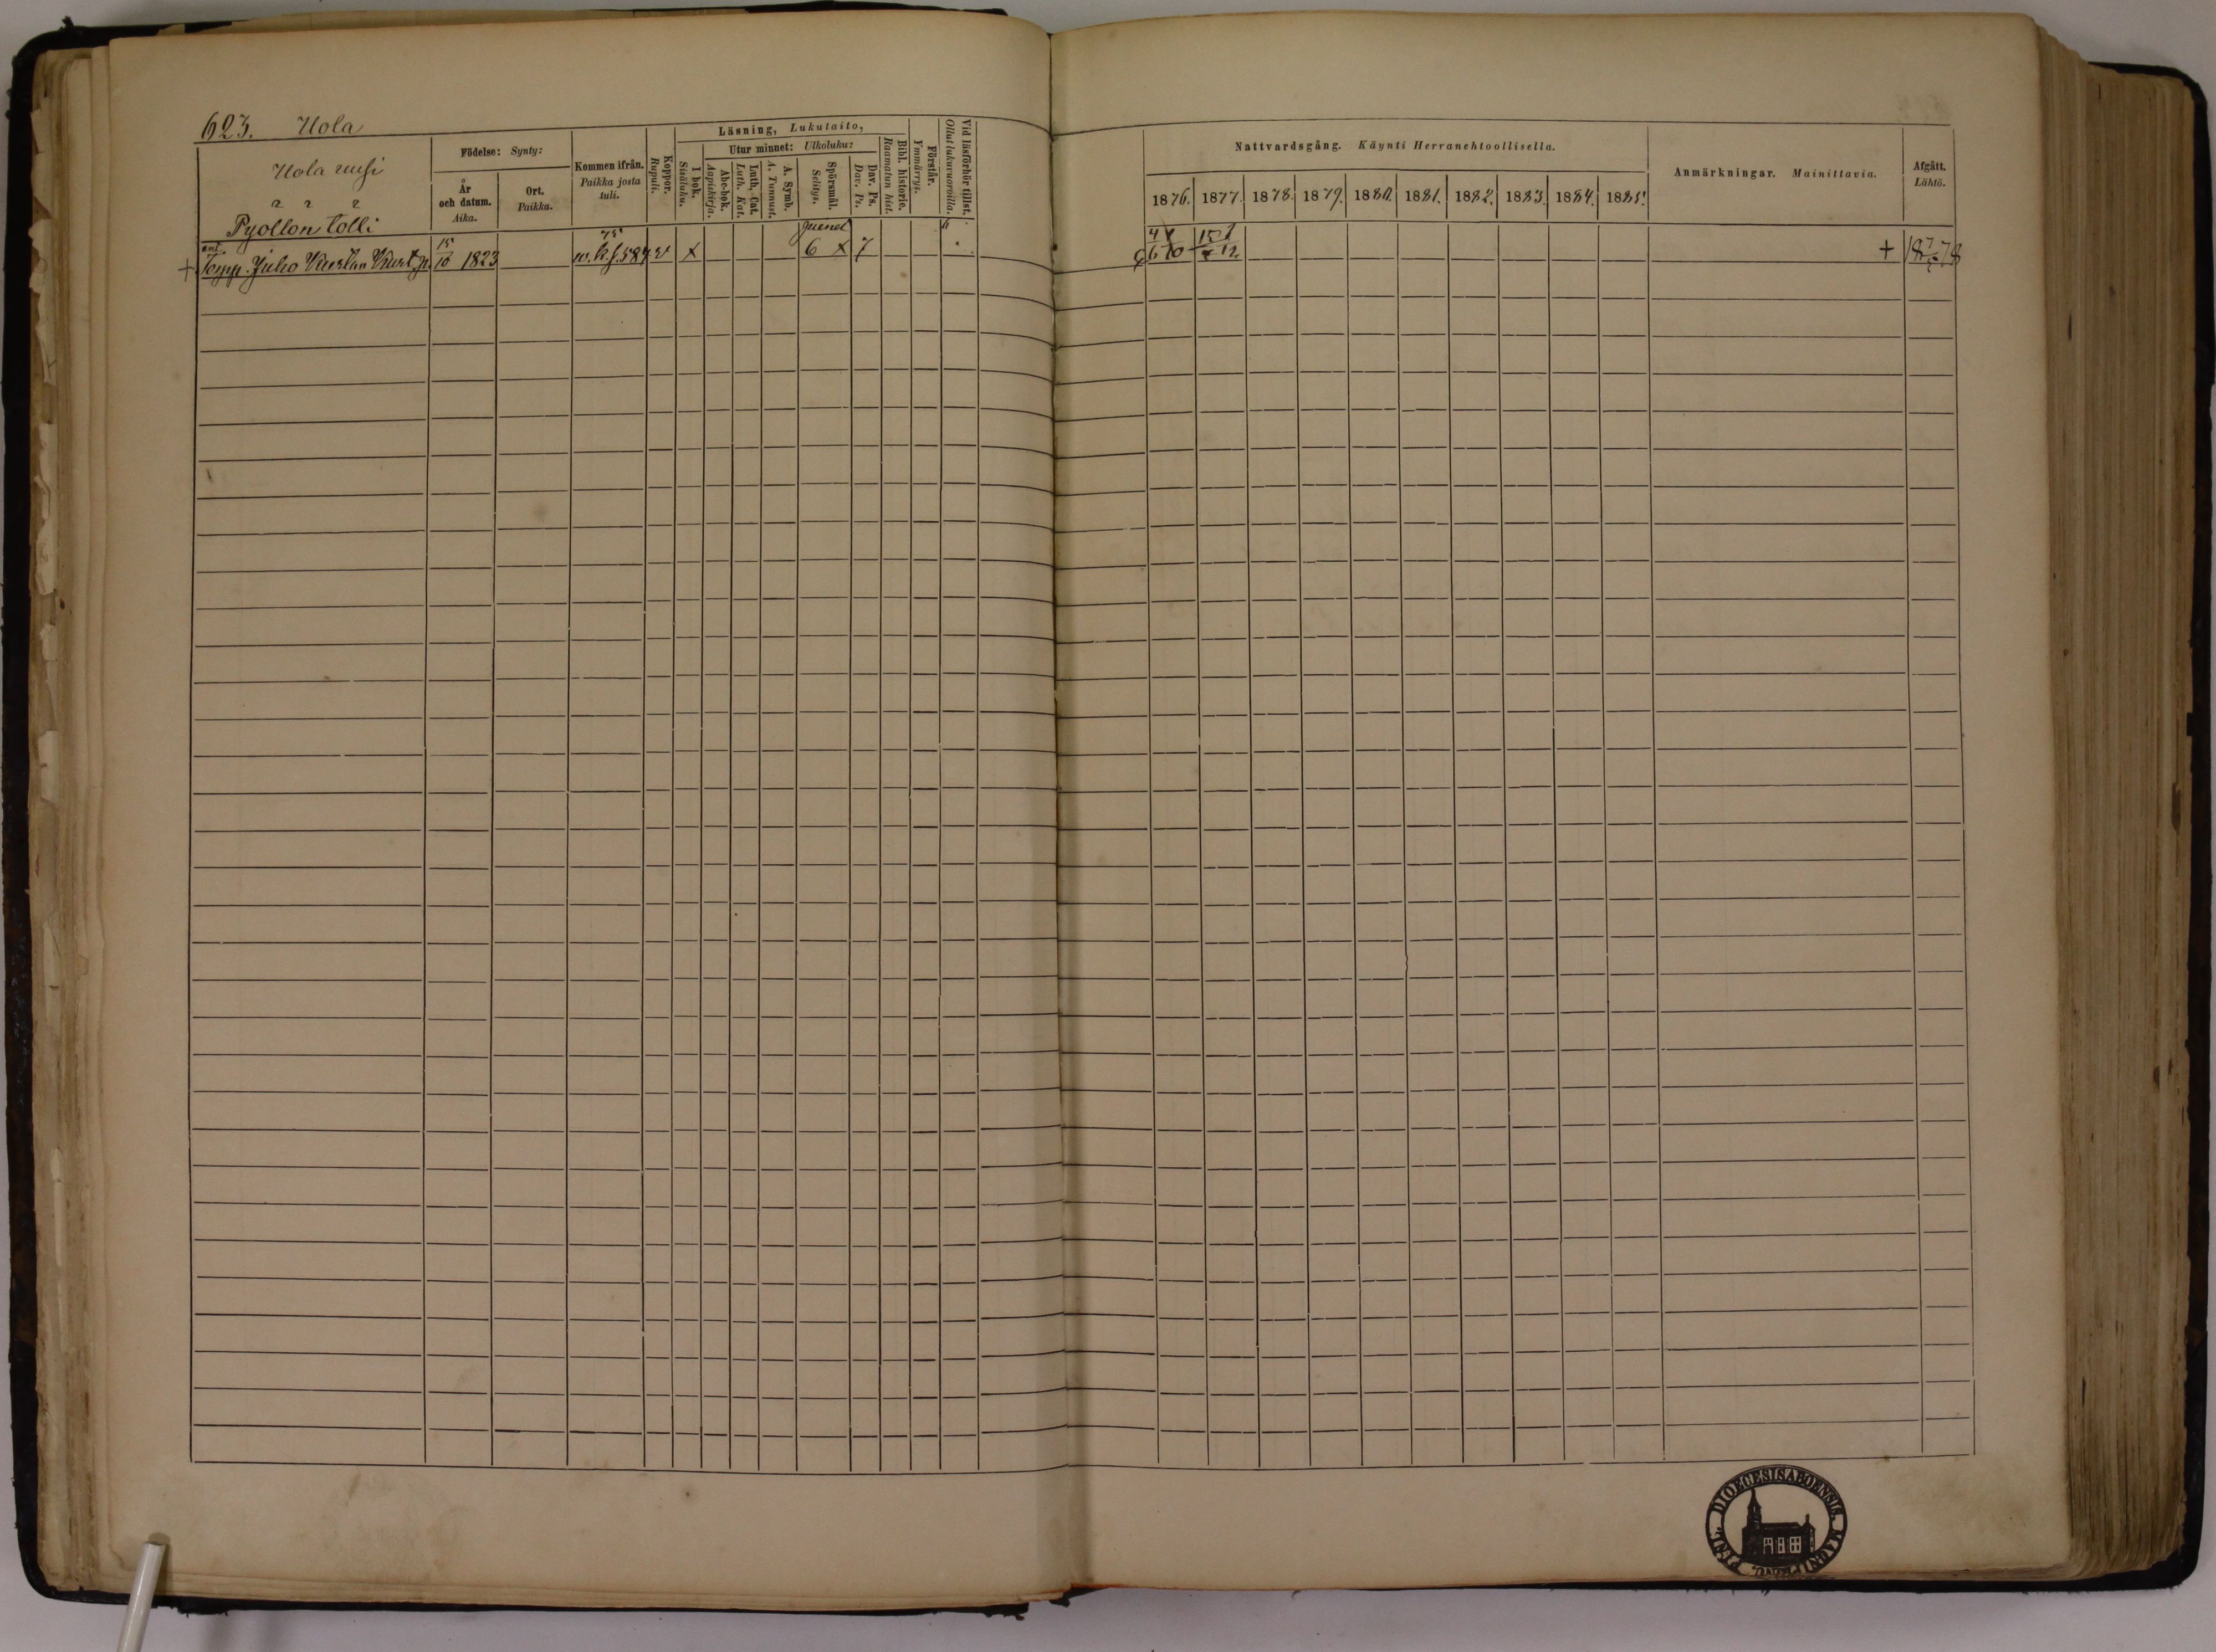 623. Uola
Uola uusi
Pyollon tolli
Födelse: Synty:
År och datum. Aika.
Ort. Paikka.
Kommen ifrån. Paikka josta tuli.
Koppor. Rupuli.
Läsning, Lukutaito,
I bok. Sisäluku.
Utur minnet: Ulkoluku:
Abc-bok. Aapiskirja.
Luth. Cat. Luth. Kat.
A. Symb. A. Tunnust.
Spörsmål. Selitys.
Dav. Ps. Dav. Ps.
Bibl. historie. Raamatun hist.
Förstår. Ymmärrys.
Vid läsförhör tillst. Ollut lukuvuoroilla.
Nattvardsgång. Käynti Herranehtoollisella.
1876. 1877. 1878. 1879. 1880. 1881. 1882. 1883. 1884. 1885.
Anmärkningar. Mainittavia.
Afgått. Lähtö.
+ Juho 15/10 1823 6 x 7
+
DIOECESIS ABOENSIS